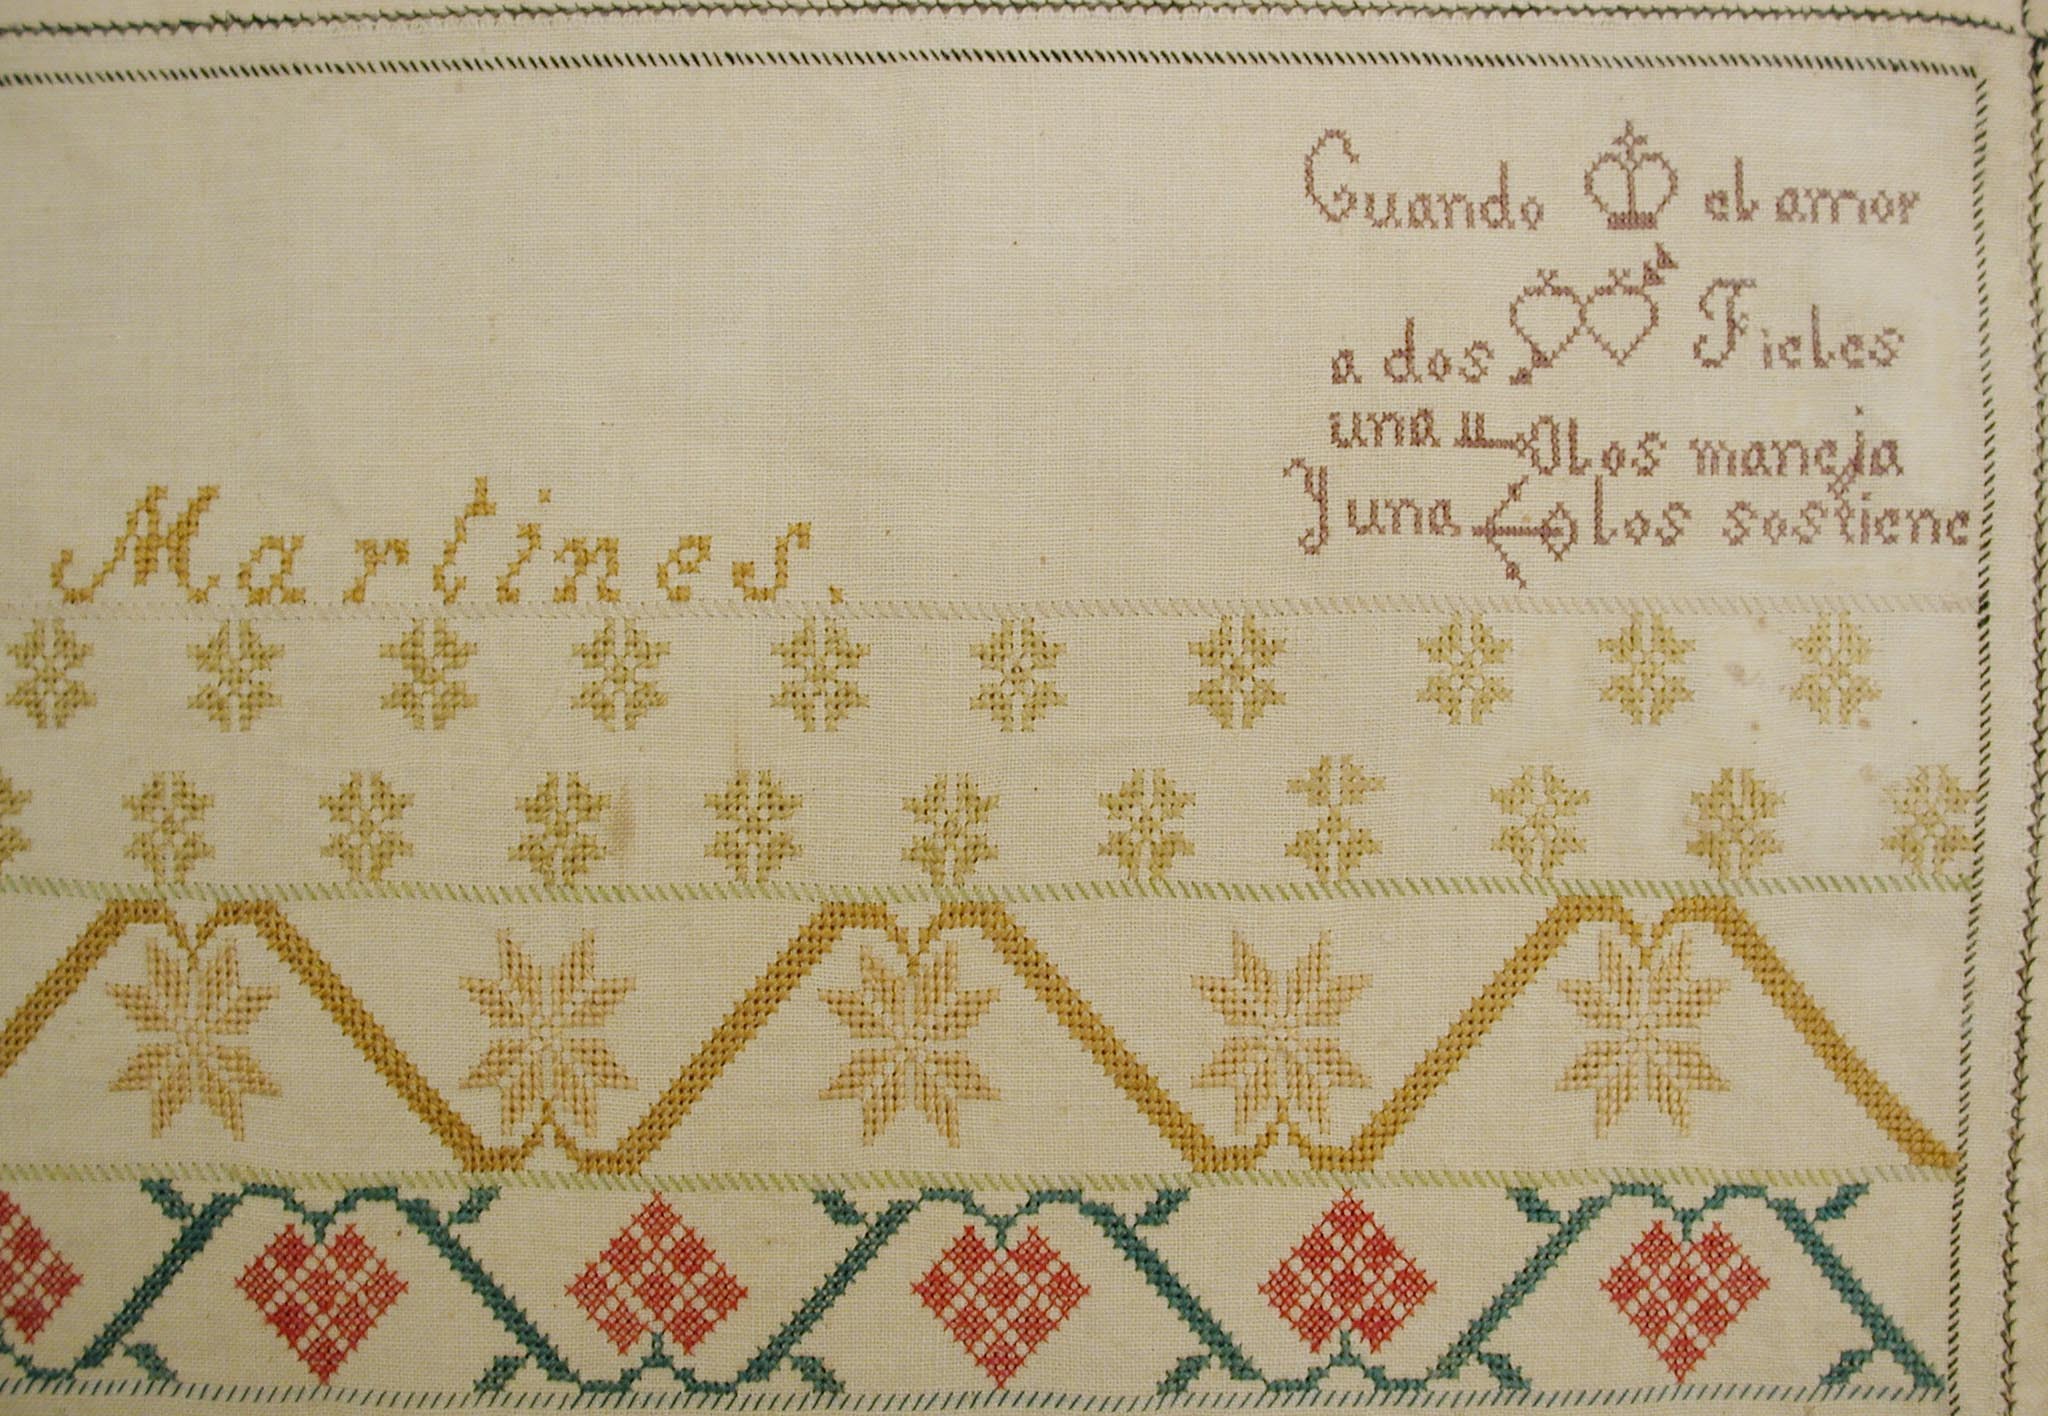 Cuando el amor
a dos Fieles
una los maneja
Y una los sostiene
Martines.